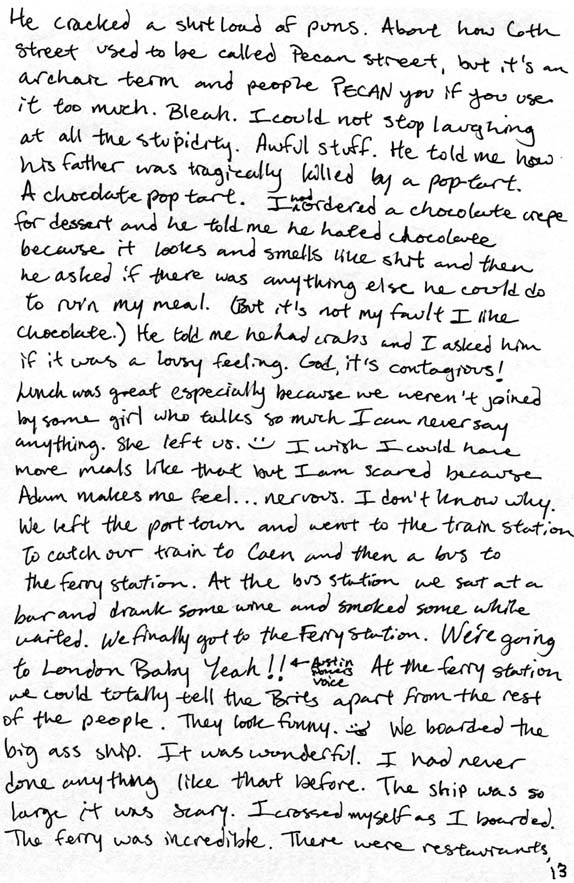 He cracked a shit load of puns. About how 6th
street used to be called Pecan street, but it's an
archaic term and people PECAN you if you use
it too much. Bleah. I could not stop laughing
at all the stupidity. Awful stuff. He told me how
his father was tragically killed by a poptart.
A chocolate pop tart. I had ordered a chocolate crepe
for dessert and he told me he hated chocolate
because it looks and smells like shit and then
he asked if there was anything else he could do
to ruin my meal. (But it's not my fault I like
chocolate.) He told me he had crabs and I asked him
if it was a lousy feeling. God, it's contagious!
Lunch was great especially because we weren't joined
by some girl who talks so much I can never say
anything. She left us. I wish I could have
more meals like that but I am scared because
Adam makes me feel... nervous. I don't know why.
We left the port town and went to the train station
To catch our train to Caen and then a bus to
the ferry station. At the bus station we sat at a
bar and drank some wine and smoked some while
waited. We finally got to the Ferry station. We're going
to London Baby Yeah!! ← Austin Powers Voice At the ferry station
we could totally tell the Brits apart from the rest
of the people. They look funny. We boarded the
big ass ship. It was wonderful. I had never
done anything like that before. The ship was so
large it was scary. I crossed myself as I boarded.
The ferry was incredible. There were restaurants,
13